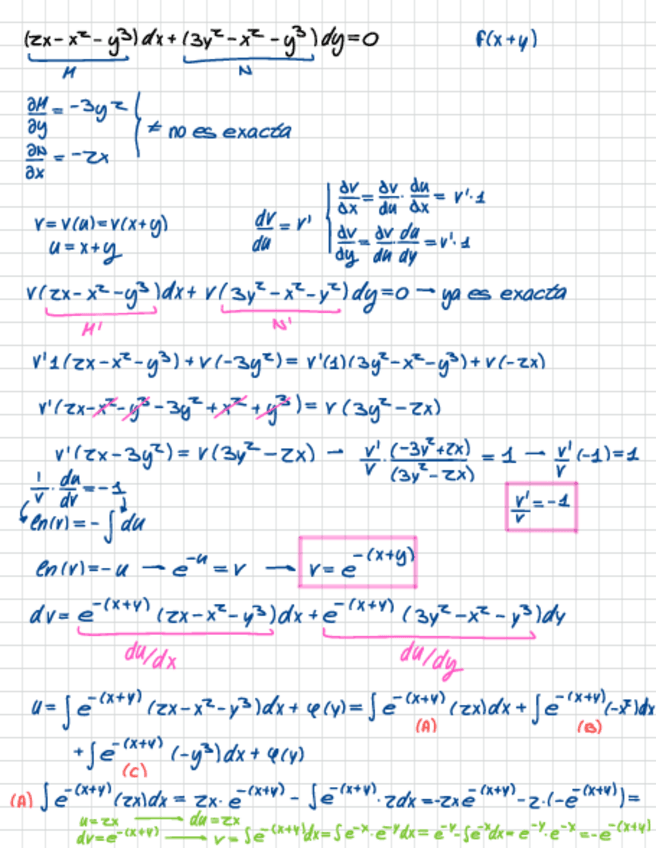 (2x-x²-y³)dx+(3y²-x²-y³)dy=0 f(x+y)
M N
∂M/∂y = -3y²
≠ no es exacta
∂N/∂x = -2x
v=v(u)=v(x+y) dv/du = v' ∂v/∂x = ∂v/du · du/∂x = v'·1
u=x+y dv/dy = dv/du du/dy = v'·1
v(2x-x²-y³)dx+v(3y²-x²-y²)dy=0 → ya es exacta
M' N'
v'1(2x-x²-y³)+v(-3y²)=v'(1)(3y²-x²-y³)+v(-2x)
v'(2x-x²-y³-3y²+x²+y³)=v(3y²-2x)
v'(2x-3y²)=v(3y²-2x) → v'/v · (-3y²+2x)/(3y²-2x) = 1 → v'/v (-1)=1
1/v · du/dv = -1 v'/v = -1
ln(v)=-∫du
ln(v)=-u → e^-u = v → v=e^-(x+y)
dv=e^-(x+y) (2x-x²-y³)dx+e^-(x+y) (3y²-x²-y³)dy
du/dx du/dy
u=∫e^-(x+y) (2x-x²-y³)dx+φ(y)=∫e^-(x+y) (2x)dx+∫e^-(x+y) (-x²)dx
(A) (B)
+∫e^-(x+y) (-y³)dx+φ(y)
(C)
(A) ∫e^-(x+y) (2x)dx = 2x·e^-(x+y) - ∫e^-(x+y)·2dx=-2xe^-(x+y)-2·(-e^-(x+y))=
u=2x → du=2x
dv=e^-(x+y) → v=∫e^-(x+y)dx=∫e^-x·e^-y dx=e^-y·∫e^-x dx=e^-y·e^-x=-e^-(x+y)